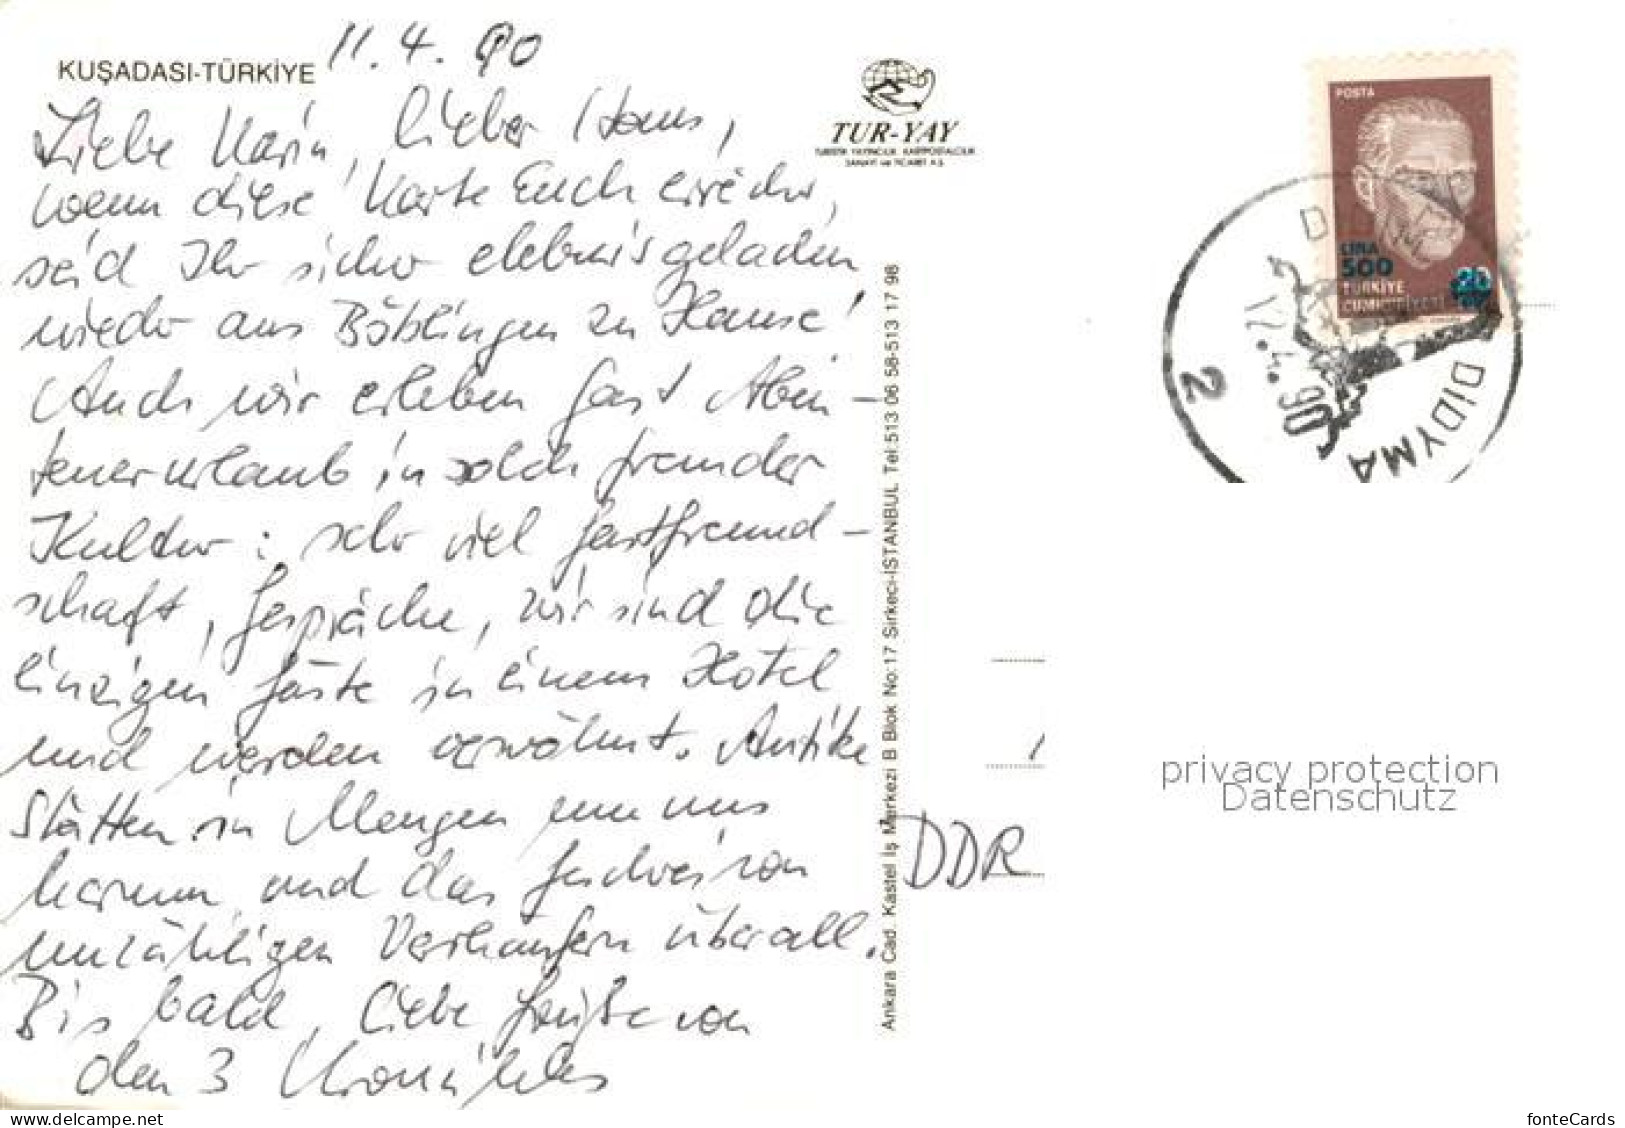 KUŞADASI-TÜRKİYE
11.4.90
Liebe Karin, lieber Hans,
wenn diese Karte Euch erreicht,
seid Ihr sicher erlebnisgeladen
wieder aus Böblingen zu Hause!
Auch wir erleben fast Aben-
teuerurlaub in solch fremder
Kultur: sehr viel Gastfreund-
schaft, Gespräche, wir sind die
einzigen Gäste in einem Hotel
und werden verwöhnt. Antike
Stätten in Mengen um uns
herum und das von
unzähligen Verkäufern überall.
Bis bald, liebe Grüße von
den 3
TUR-YAY
TURİSTİK YAYINCILIK KARTPOSTALCILIK
SANAYİ ve TİCARET A.Ş.
Ankara Cad. Kastel İş Merkezi B Blok No:17 Sirkeci-İSTANBUL Tel:513 06 58-513 17 98
POSTA
LİRA
500
20
TÜRKİYE
CUMHURİYETİ
DİDYMA
2
DDR
privacy protection
Datenschutz
delcampe.net
fonteCards